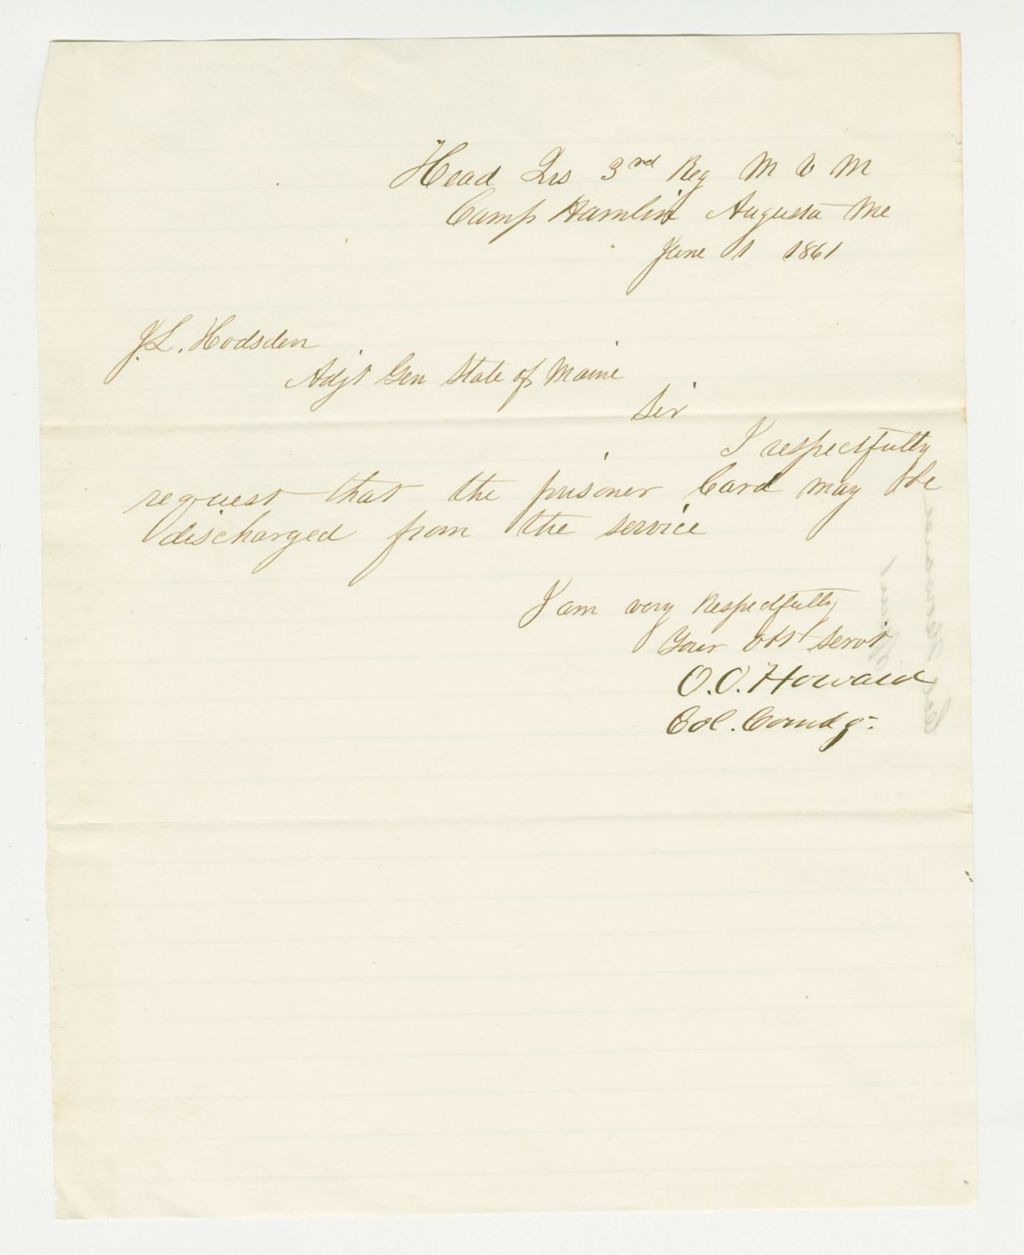 Head Qrs 3rd Reg M V M
Camp Hamlin Augusta Me
June 1 1861
J.L. Hodsden
Adjt Gen State of Maine
Sir
I respectfully
request that the prisoner Card may be
discharged from the service
I am very Respectfully
Your Obt Servt
O.O. Howard
Col. Comdg.